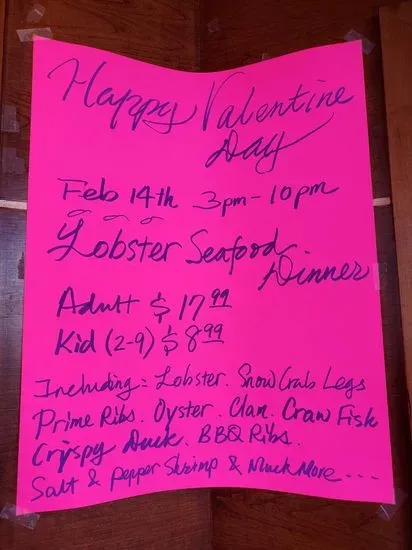 Happy Valentine
Day
Feb 14th 3pm-10pm
Lobster Seafood
Dinner
Adult $17.99
Kid (2-9) $8.99
Including: Lobster. Snow Crab Legs
Prime Ribs. Oyster. Clan. Craw Fish
Crispy Duck. BBQ Ribs.
Salt & pepper Shrimp & Much More ...